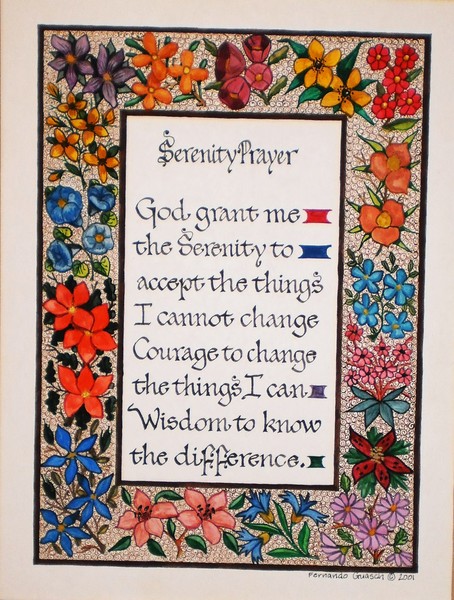 Serenity Prayer
God grant me
the Serenity to
accept the things
I cannot change
Courage to change
the things I can
Wisdom to know
the difference.
Fernando Guasch © 2001